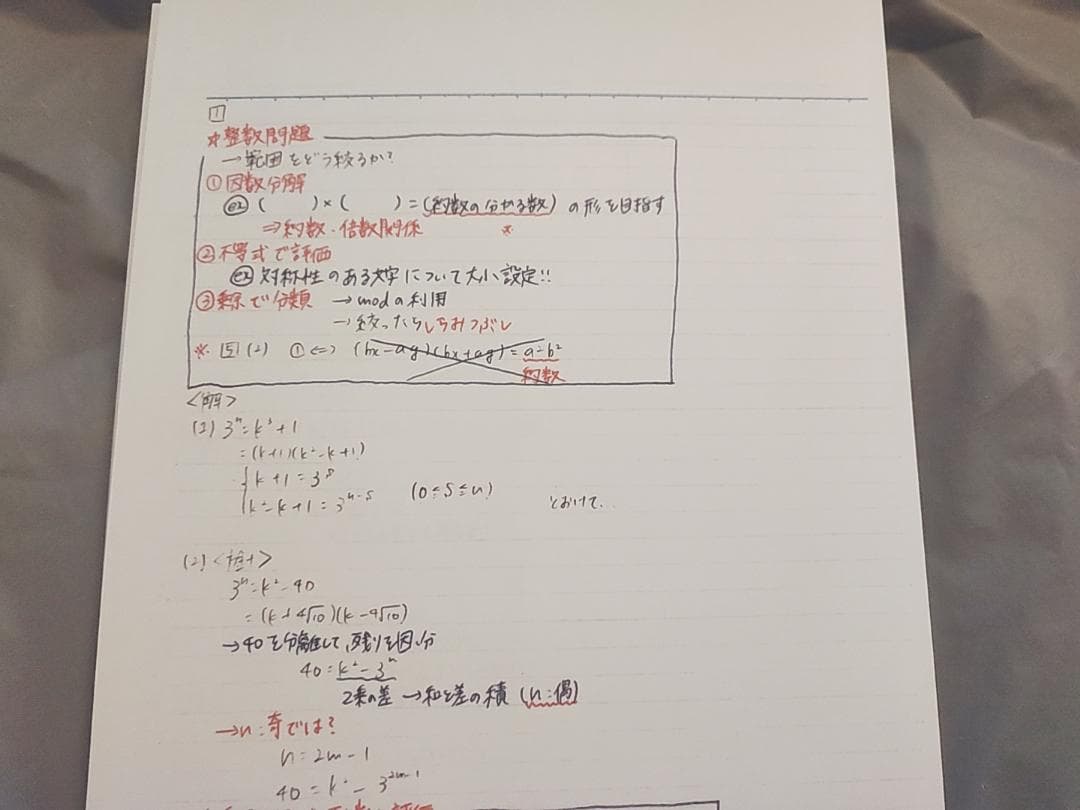 1
☆整数問題
→範囲をどう絞るか?
① 因数分解
ex ( )×( )=(約数の分かる数) の形を目指す
⇒約数・倍数関係 ※
②不等式で評価
ex 対称性のある文字について大小設定!!
③剰余で分類 →modの利用
→絞ったらしらみつぶし
※ 5 (2) ①⇔ (bx-ay)(bx+ay)=a²-b²
約数
<解>
(1) 3ⁿ=k³+1
=(k+1)(k²-k+1)
k+1=3ˢ
k²-k+1=3ⁿ⁻ˢ (0≦s≦n) とおけて..
(2)
3ⁿ=k²-40
=(k+4√10)(k-4√10)
→40を分離して、残りを因.分
40=k²-3ⁿ
2乗の差 →和と差の積 (n:偶)
→n:奇では?
n=2m-1
40=k²-3²ᵐ⁻¹